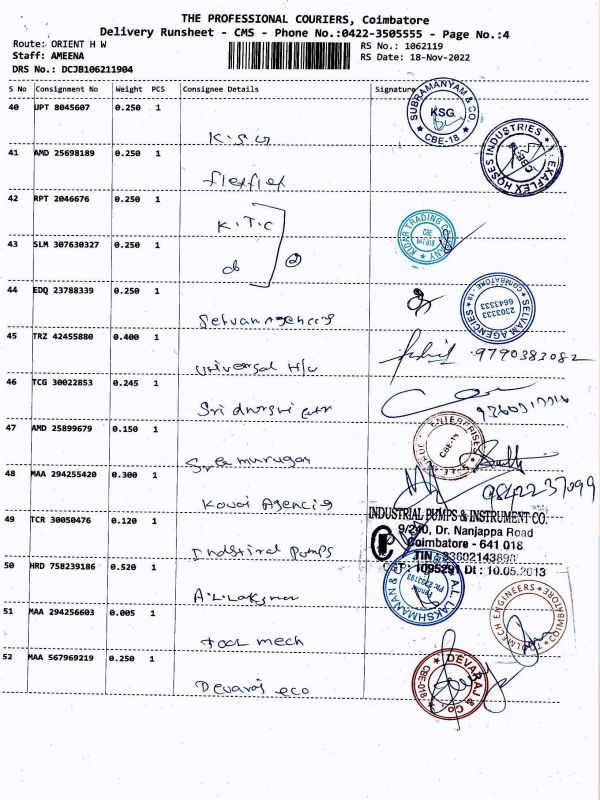 THE PROFESSIONAL COURIERS, Coimbatore
Delivery Runsheet - CMS - Phone No.:0422-3505555 - Page No.:4
Route: ORIENT H W
RS No.: 1062119
Staff: AMEENA
RS Date: 18-Nov-2022
DRS No.: DCJB106211904
S No Consignment No Weight PCS Consignee Details Signature
40 UPT 8045607 0.250 1
K.S.G
SUBRAMANYAM & CO
KSG
CBE-18
41 AMD 25698189 0.250 1
flexflex
EXAFLEX HOSES INDUSTRIES
CBE
42 RPT 2046676 0.250 1
K.T.C
TRADING
CBE
43 SLM 307630327 0.250 1
do
2
44 EDQ 23788339 0.250 1
Selvam agencies
SELVAM AGENCIES
COIMBATORE - 18
2303333
6643333
45 TRZ 42455880 0.400 1
Universal H/w
9790383082
46 TCG 30022853 0.245 1
Sri
47 AMD 25899679 0.150 1
murugan
ENTERPRISES
CBE-18
48 MAA 294255420 0.300 1
Kovai Agencies
9842237099
49 TCR 30050476 0.120 1
Industrial pumps
INDUSTRIAL PUMPS & INSTRUMENT CO.
9/240, Dr. Nanjappa Road
Coimbatore - 641 018
TIN : 33602143898
CST : 1095291 Dt : 10.05.2013
50 HRD 758239186 0.520 1
A.L. Laksman
AL. LAKSHMANAN &
51 MAA 294256603 0.005 1
tool mech
TOOLMECH ENGINEERS
COIMBATORE
52 MAA 567969219 0.250 1
Devaraj eco
DEVARAJ & CO
CBE-018